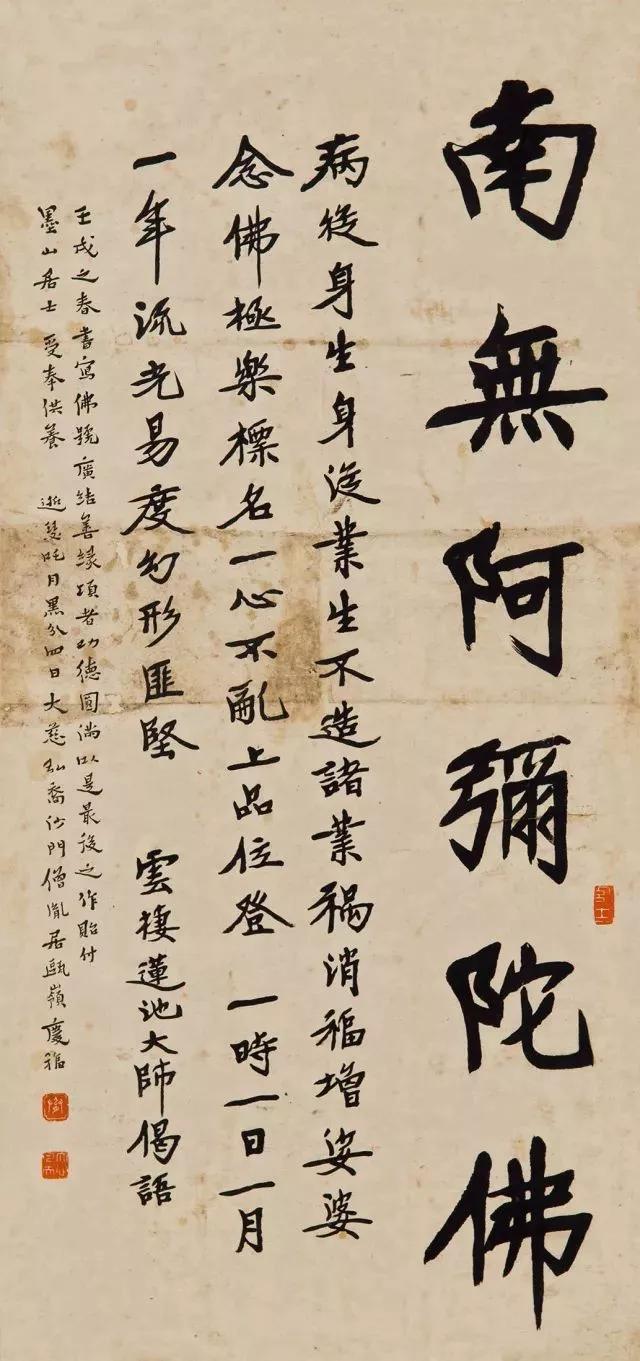 南無阿彌陀佛
病從身生身從業生不造諸業禍消福增娑婆
念佛極樂標名一心不亂上品位登 一時一日一月
一年流光易度幻形匪堅 雲棲蓮池大師偈語
壬戌之春書寫佛號廣結善緣頃者功德圓満以是最後之作貽付
墨山居士 受奉供養 逝瑟吒月黑分四日大慈弘裔沙門僧胤居甌嶺慶福